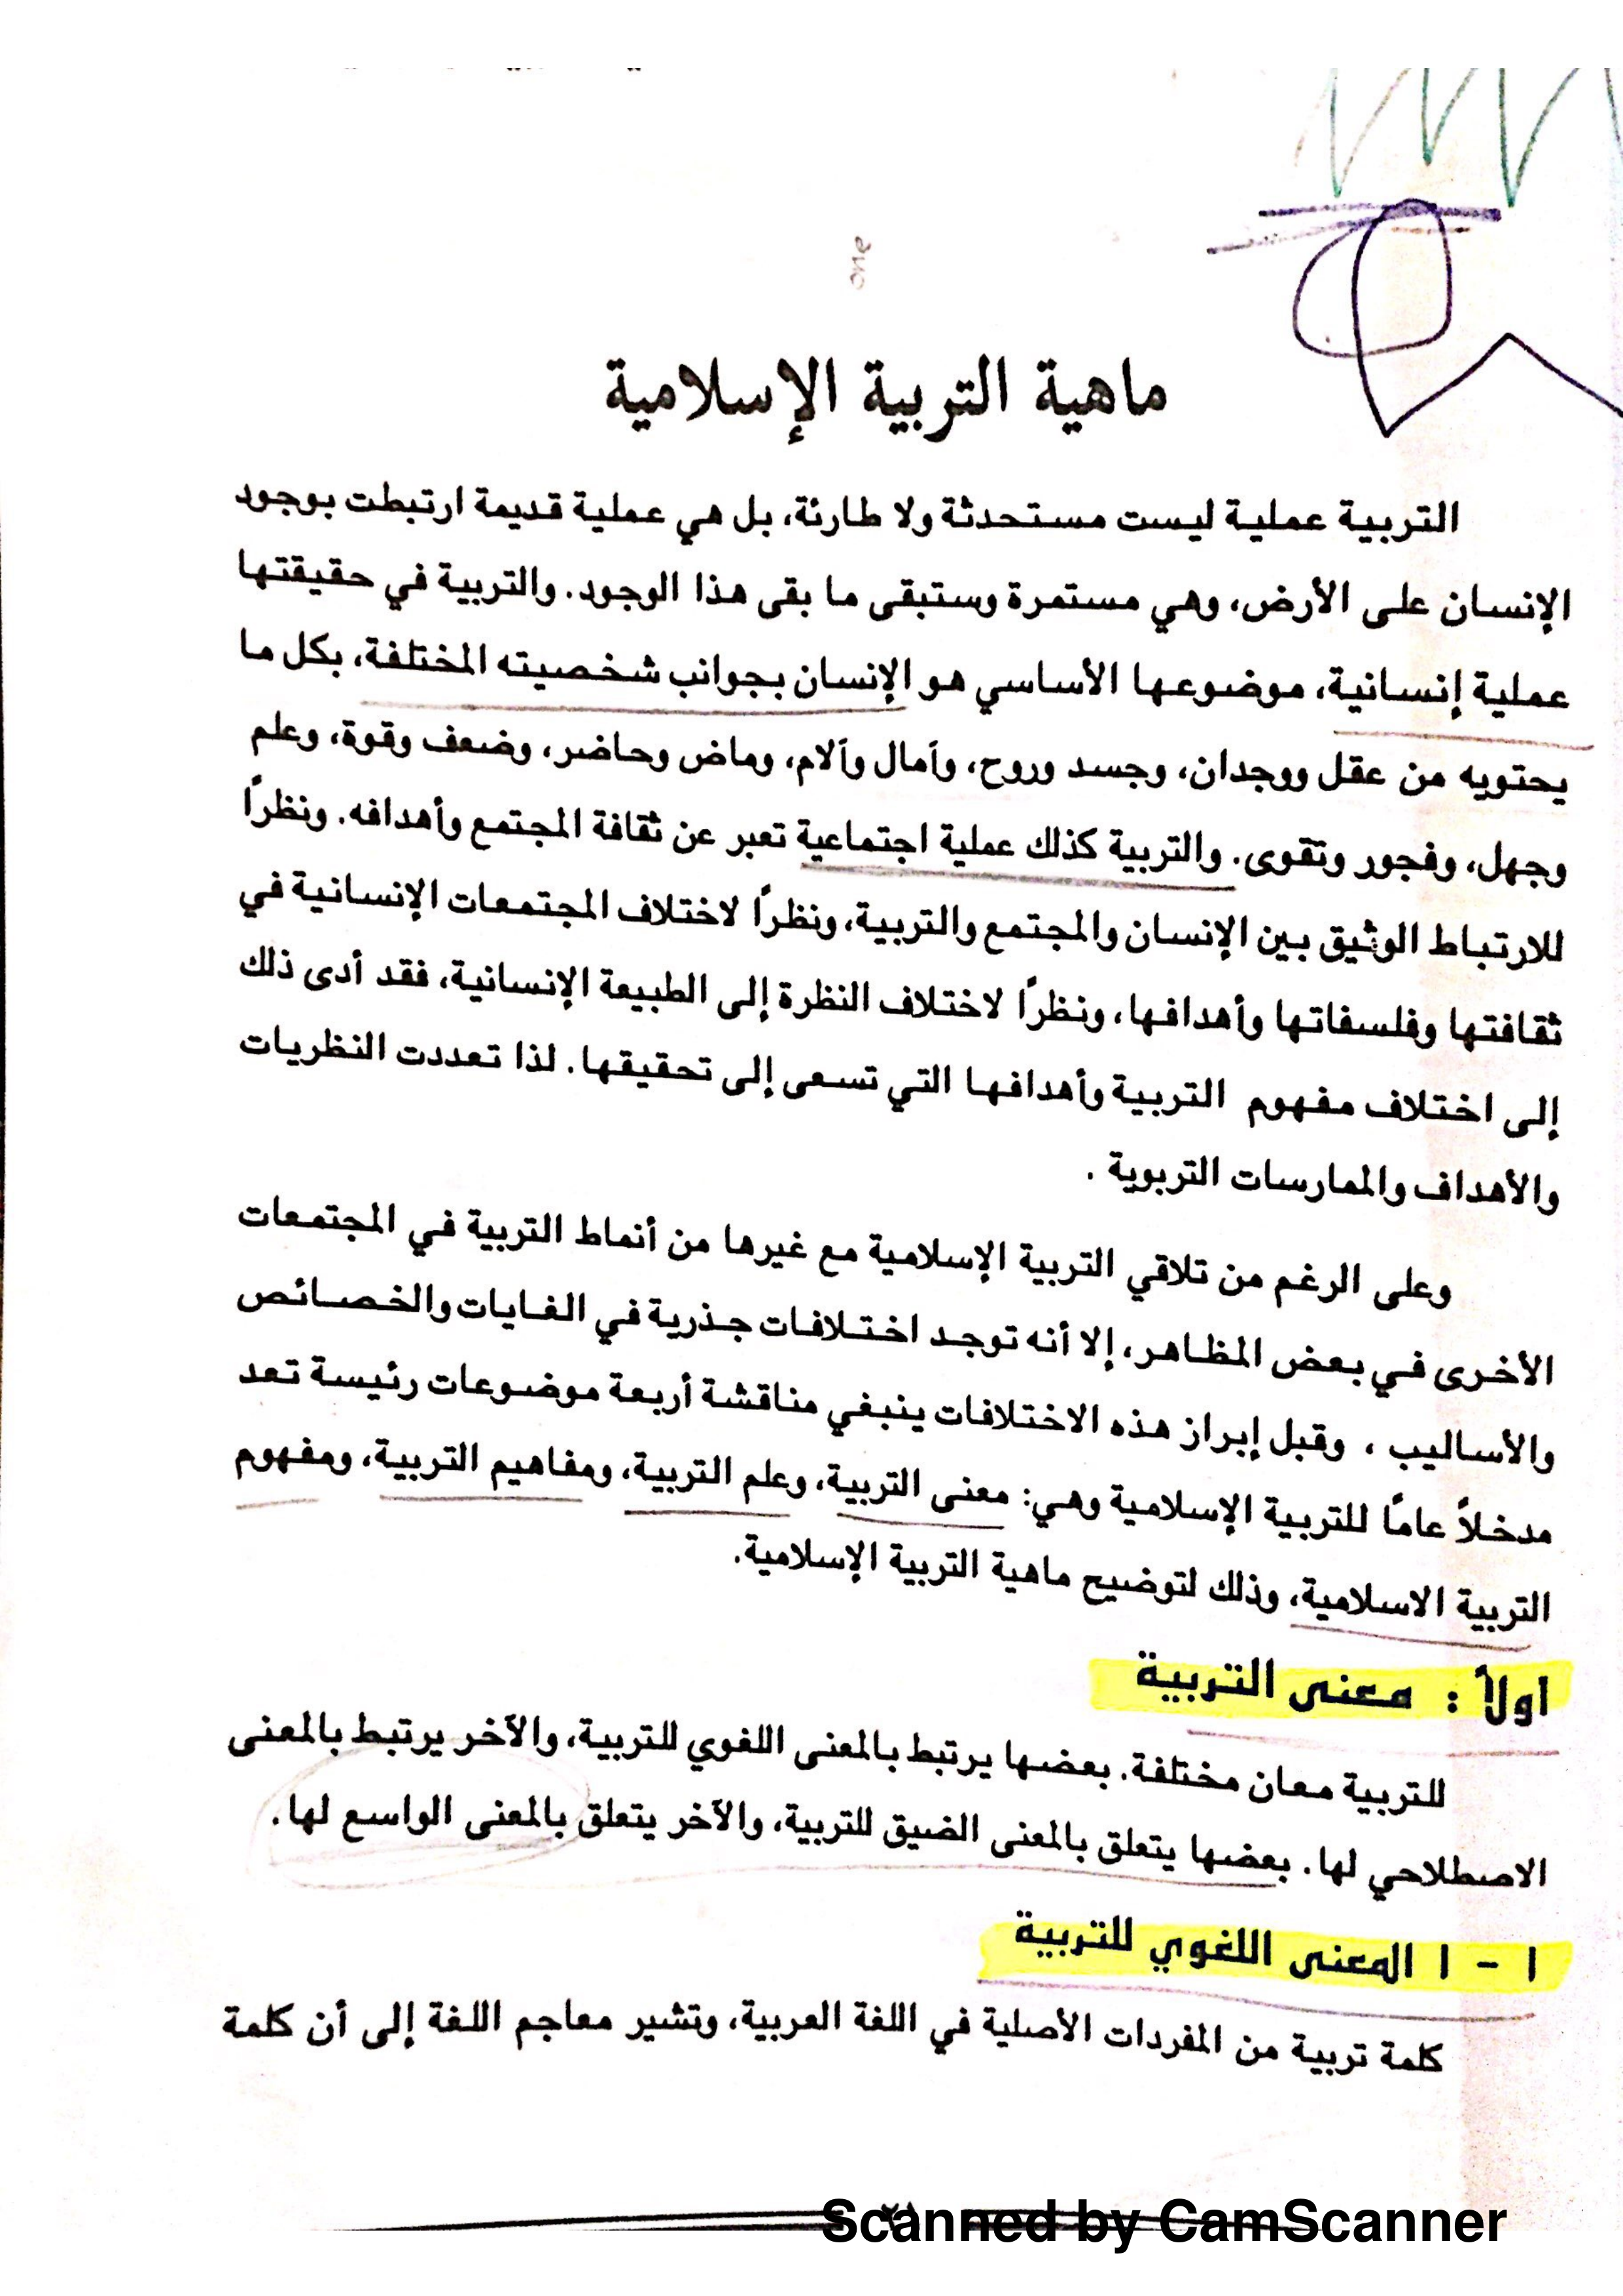 one
ماهية التربية الإسلامية
التربية عملية ليست مستحدثة ولا طارئة، بل هي عملية قديمة ارتبطت بوجود
الإنسان على الأرض، وهي مستمرة وستبقى ما بقى هذا الوجود. والتربية في حقيقتها
عملية إنسانية، موضوعها الأساسي هو الإنسان بجوانب شخصيته المختلفة، بكل ما
يحتويه من عقل ووجدان، وجسد وروح، وآمال وآلام، وماض وحاضر، وضعف وقوة، وعلم
وجهل، وفجور وتقوى. والتربية كذلك عملية اجتماعية تعبر عن ثقافة المجتمع وأهدافه. ونظراً
للارتباط الوثيق بين الإنسان والمجتمع والتربية، ونظراً لاختلاف المجتمعات الإنسانية في
ثقافتها وفلسفاتها وأهدافها، ونظراً لاختلاف النظرة إلى الطبيعة الإنسانية، فقد أدى ذلك
إلى اختلاف مفهوم التربية وأهدافها التي تسعى إلى تحقيقها. لذا تعددت النظريات
والأهداف والممارسات التربوية .
وعلى الرغم من تلاقي التربية الإسلامية مع غيرها من أنماط التربية في المجتمعات
الأخرى في بعض المظاهر، إلا أنه توجد اختلافات جذرية في الغايات والخصائص
والأساليب ، وقبل إبراز هذه الاختلافات ينبغي مناقشة أربعة موضوعات رئيسة تعد
مدخلاً عامًا للتربية الإسلامية وهي: معنى التربية، وعلم التربية، ومفاهيم التربية، ومفهوم
التربية الاسلامية، وذلك لتوضيح ماهية التربية الإسلامية.
اولاً : معنى التربية
للتربية معان مختلفة. بعضها يرتبط بالمعنى اللغوي للتربية، والآخر يرتبط بالمعنى
الاصطلاحي لها. بعضها يتعلق بالمعنى الضيق للتربية، والآخر يتعلق بالمعنى الواسع لها.
١ - ١ المعنى اللغوي للتربية
كلمة تربية من المفردات الأصلية في اللغة العربية، وتشير معاجم اللغة إلى أن كلمة
Scanned by CamScanner